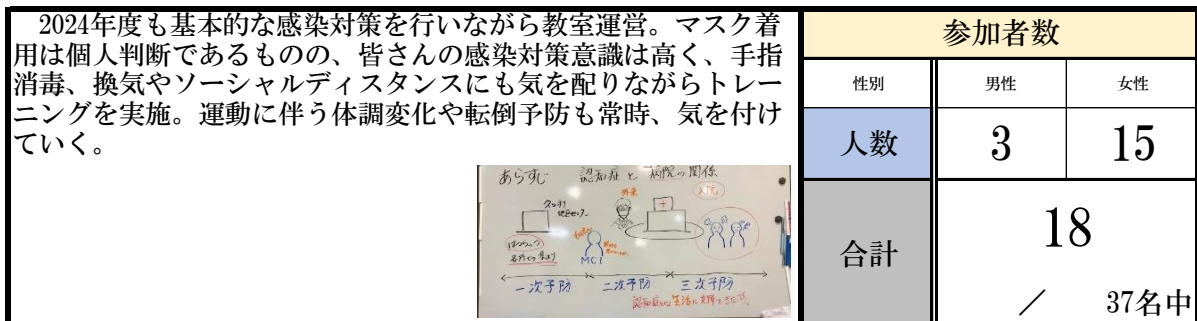 2024年度も基本的な感染対策を行いながら教室運営。マスク着
用は個人判断であるものの、皆さんの感染対策意識は高く、手指
消毒、換気やソーシャルディスタンスにも気を配りながらトレー
ニングを実施。運動に伴う体調変化や転倒予防も常時、気を付け
ていく。
あらすじ 認知症と病院の関係
外来
入院
MCI
一次予防 二次予防 三次予防
参加者数
性別 男性 女性
人数 3 15
合計 18
／ 37名中